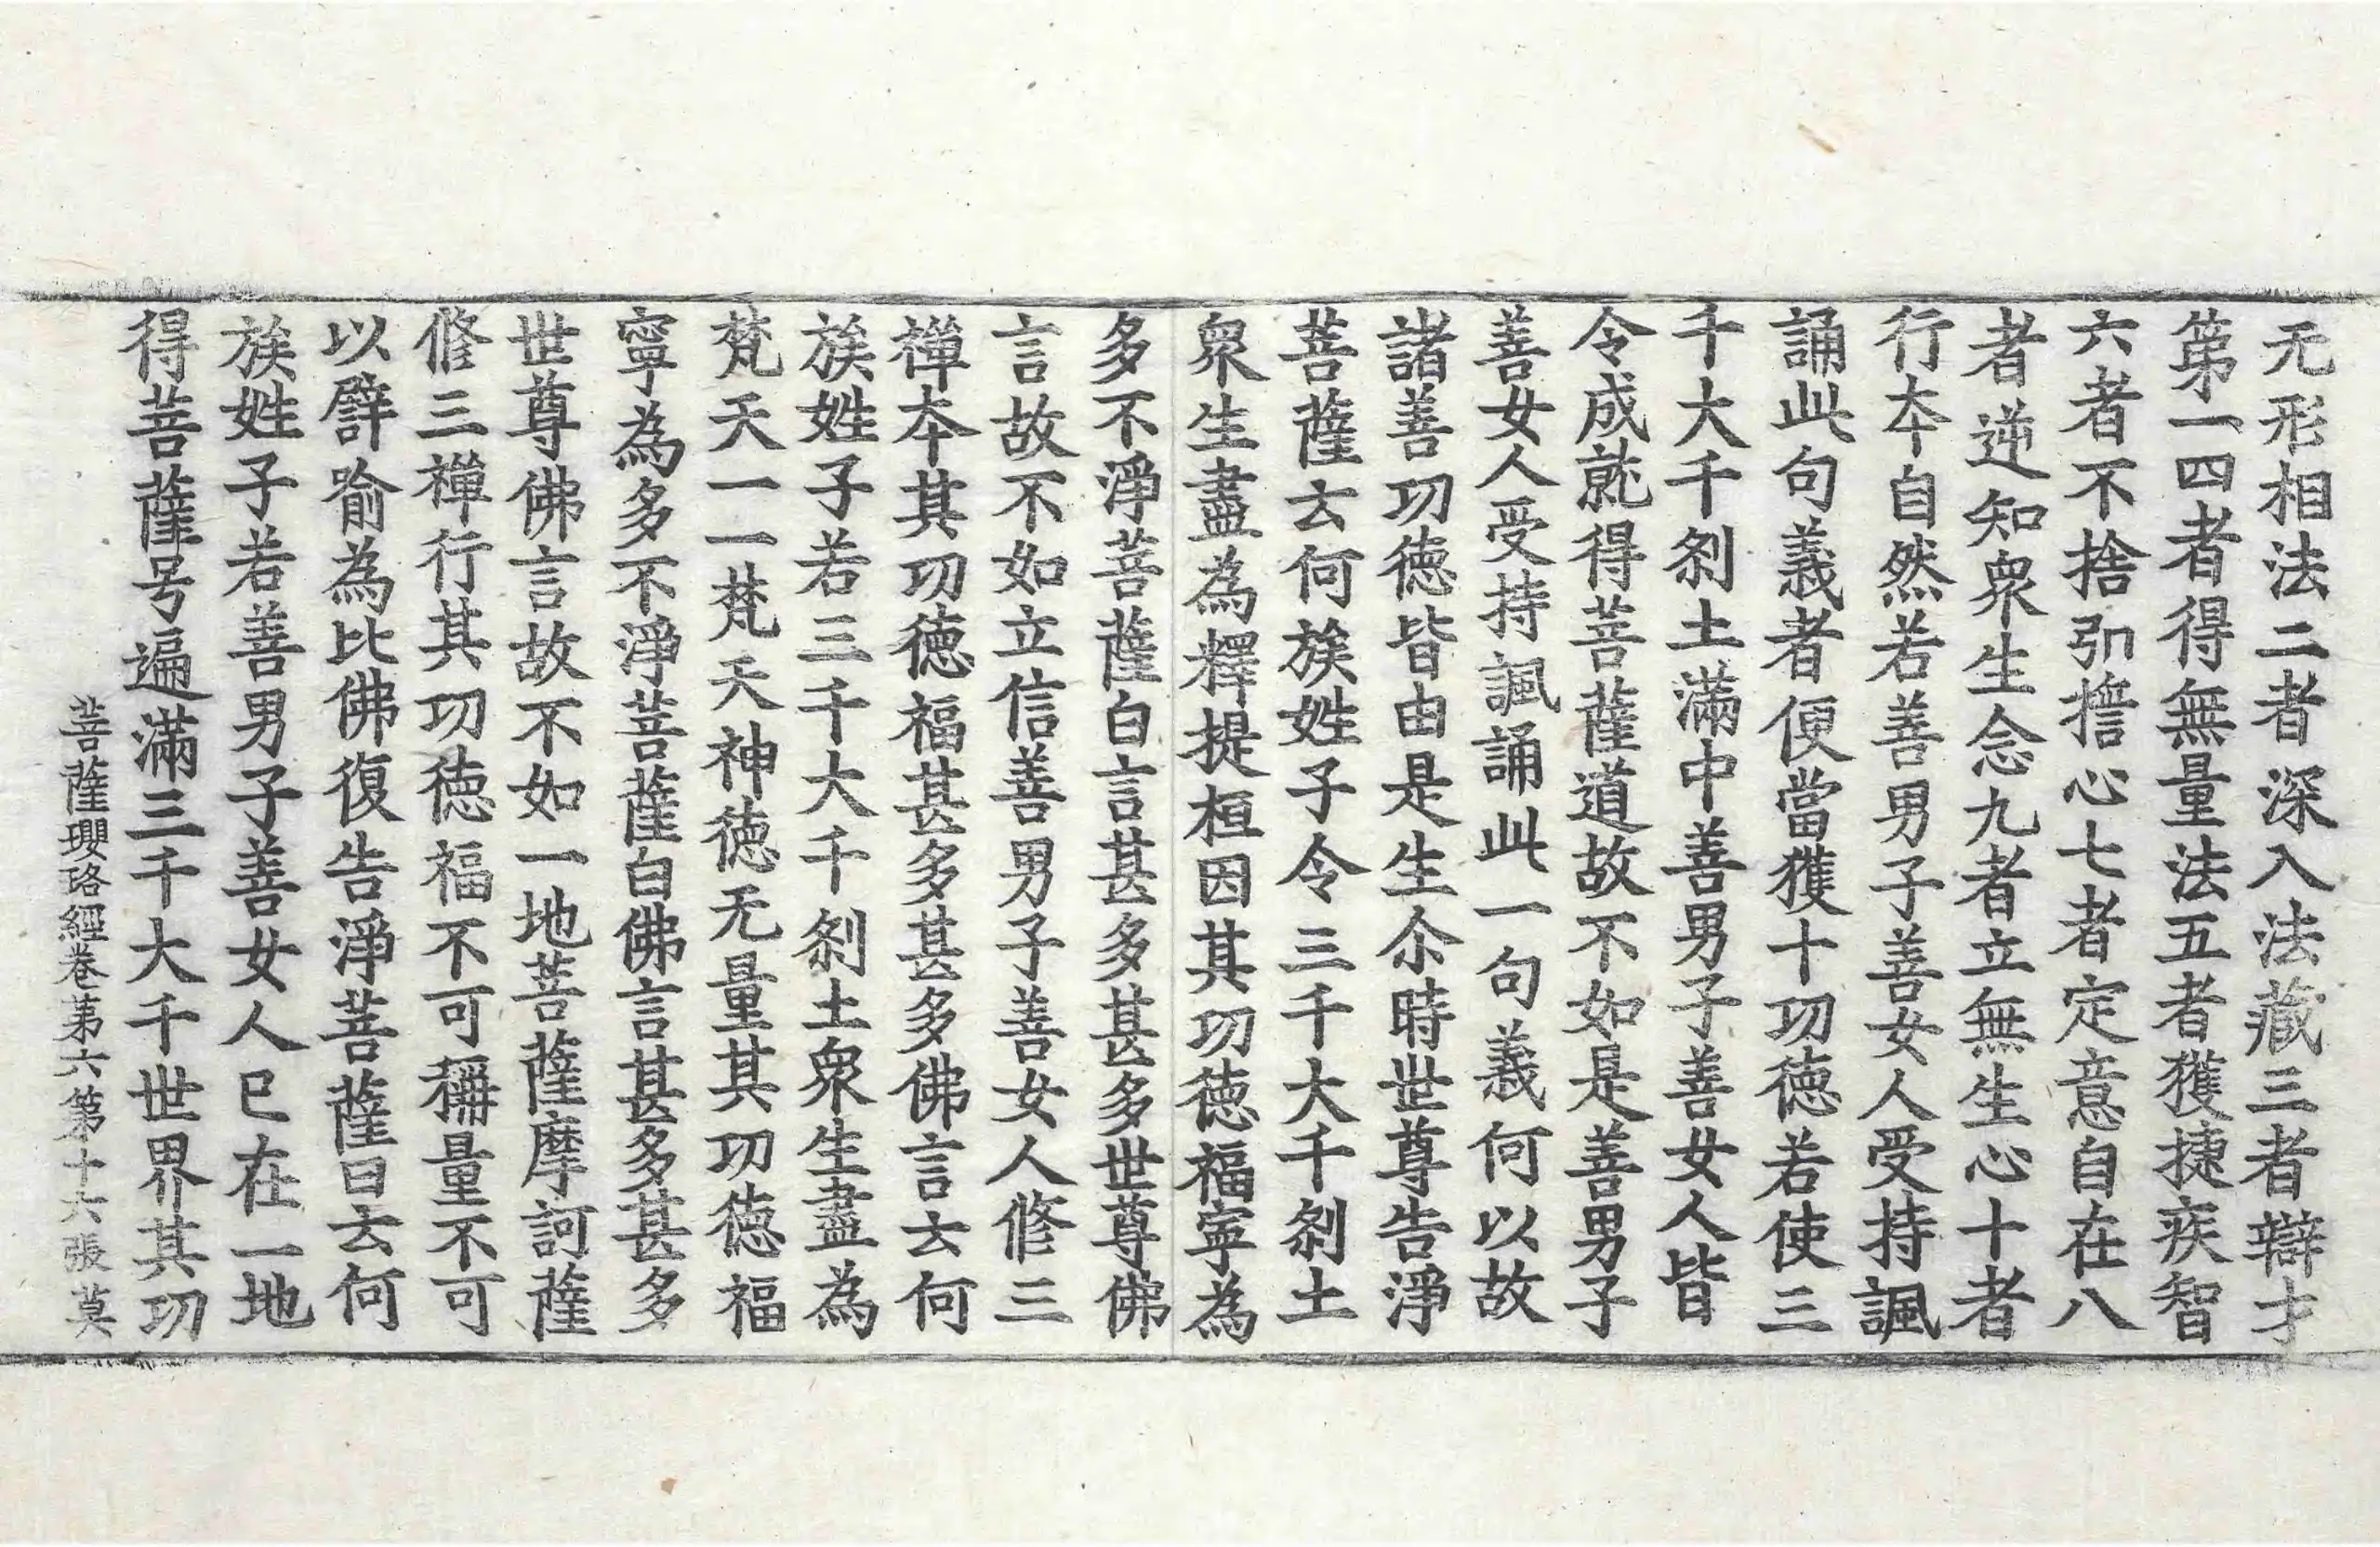 无形相法二者深入法藏三者辯才
第一四者得無量法五者獲捷疾智
六者不捨弘擔心七者定意自在八
者逆知衆生念九者立無生心十者
行本自然若善男子善女人受持諷
誦此句義者便當獲十功德若使三
千大千刹土滿中善男子善女人皆
令成就得菩薩道故不如是善男子
善女人受持諷誦此一句義何以故
諸善功德皆由是生尒時世尊告淨
菩薩云何族姓子令三千大千刹土
衆生盡為釋提桓因其功德福寧為
多不淨菩薩白言甚多甚多世尊佛
言故不如立信善男子善女人修三
禪本其功德福甚多甚多佛言云何
族姓子若三千大千刹土衆生盡為
梵天一一梵天神德无量其功德福
寧為多不淨菩薩白佛言甚多甚多
世尊佛言故不如一地菩薩摩訶薩
修三禪行其功德福不可稱量不可
以譬喻為比佛復告淨菩薩曰云何
族姓子若善男子善女人已在一地
得菩薩号遍滿三千大千世界其功
菩薩瓔珞經卷第六第十六張莫